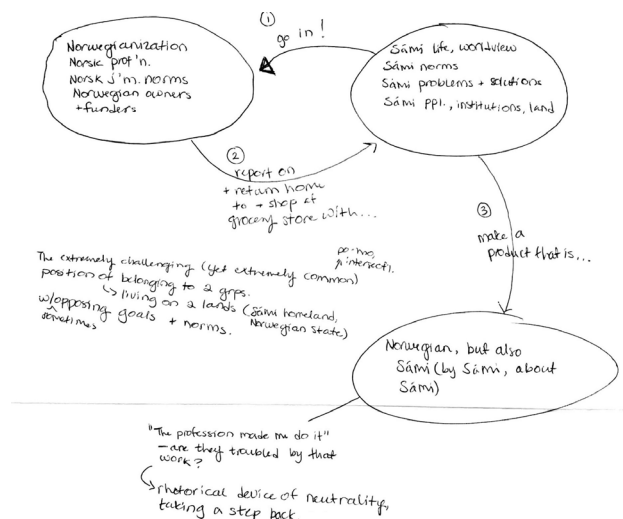 ①
go in!
Norwegianization
Norsk prof'n.
Norsk j'm. norms
Norwegian owners
+ funders
Sámi life, worldview
Sámi norms
Sámi problems + solutions
Sámi ppl., institutions, land
②
report on
+ return home
to + shop at
grocery store with...
③
make a
product that is...
po-mo,
intersecti.
The extremely challenging (yet extremely common)
position of belonging to 2 grps.
↳ living on 2 lands (Sámi homeland,
Norwegian State)
w/opposing goals + norms.
sometimes
Norwegian, but also
Sámi (by Sámi, about
Sámi)
"The profession made me do it"
– are they troubled by that
work?
rhetorical device of neutrality,
taking a step back.